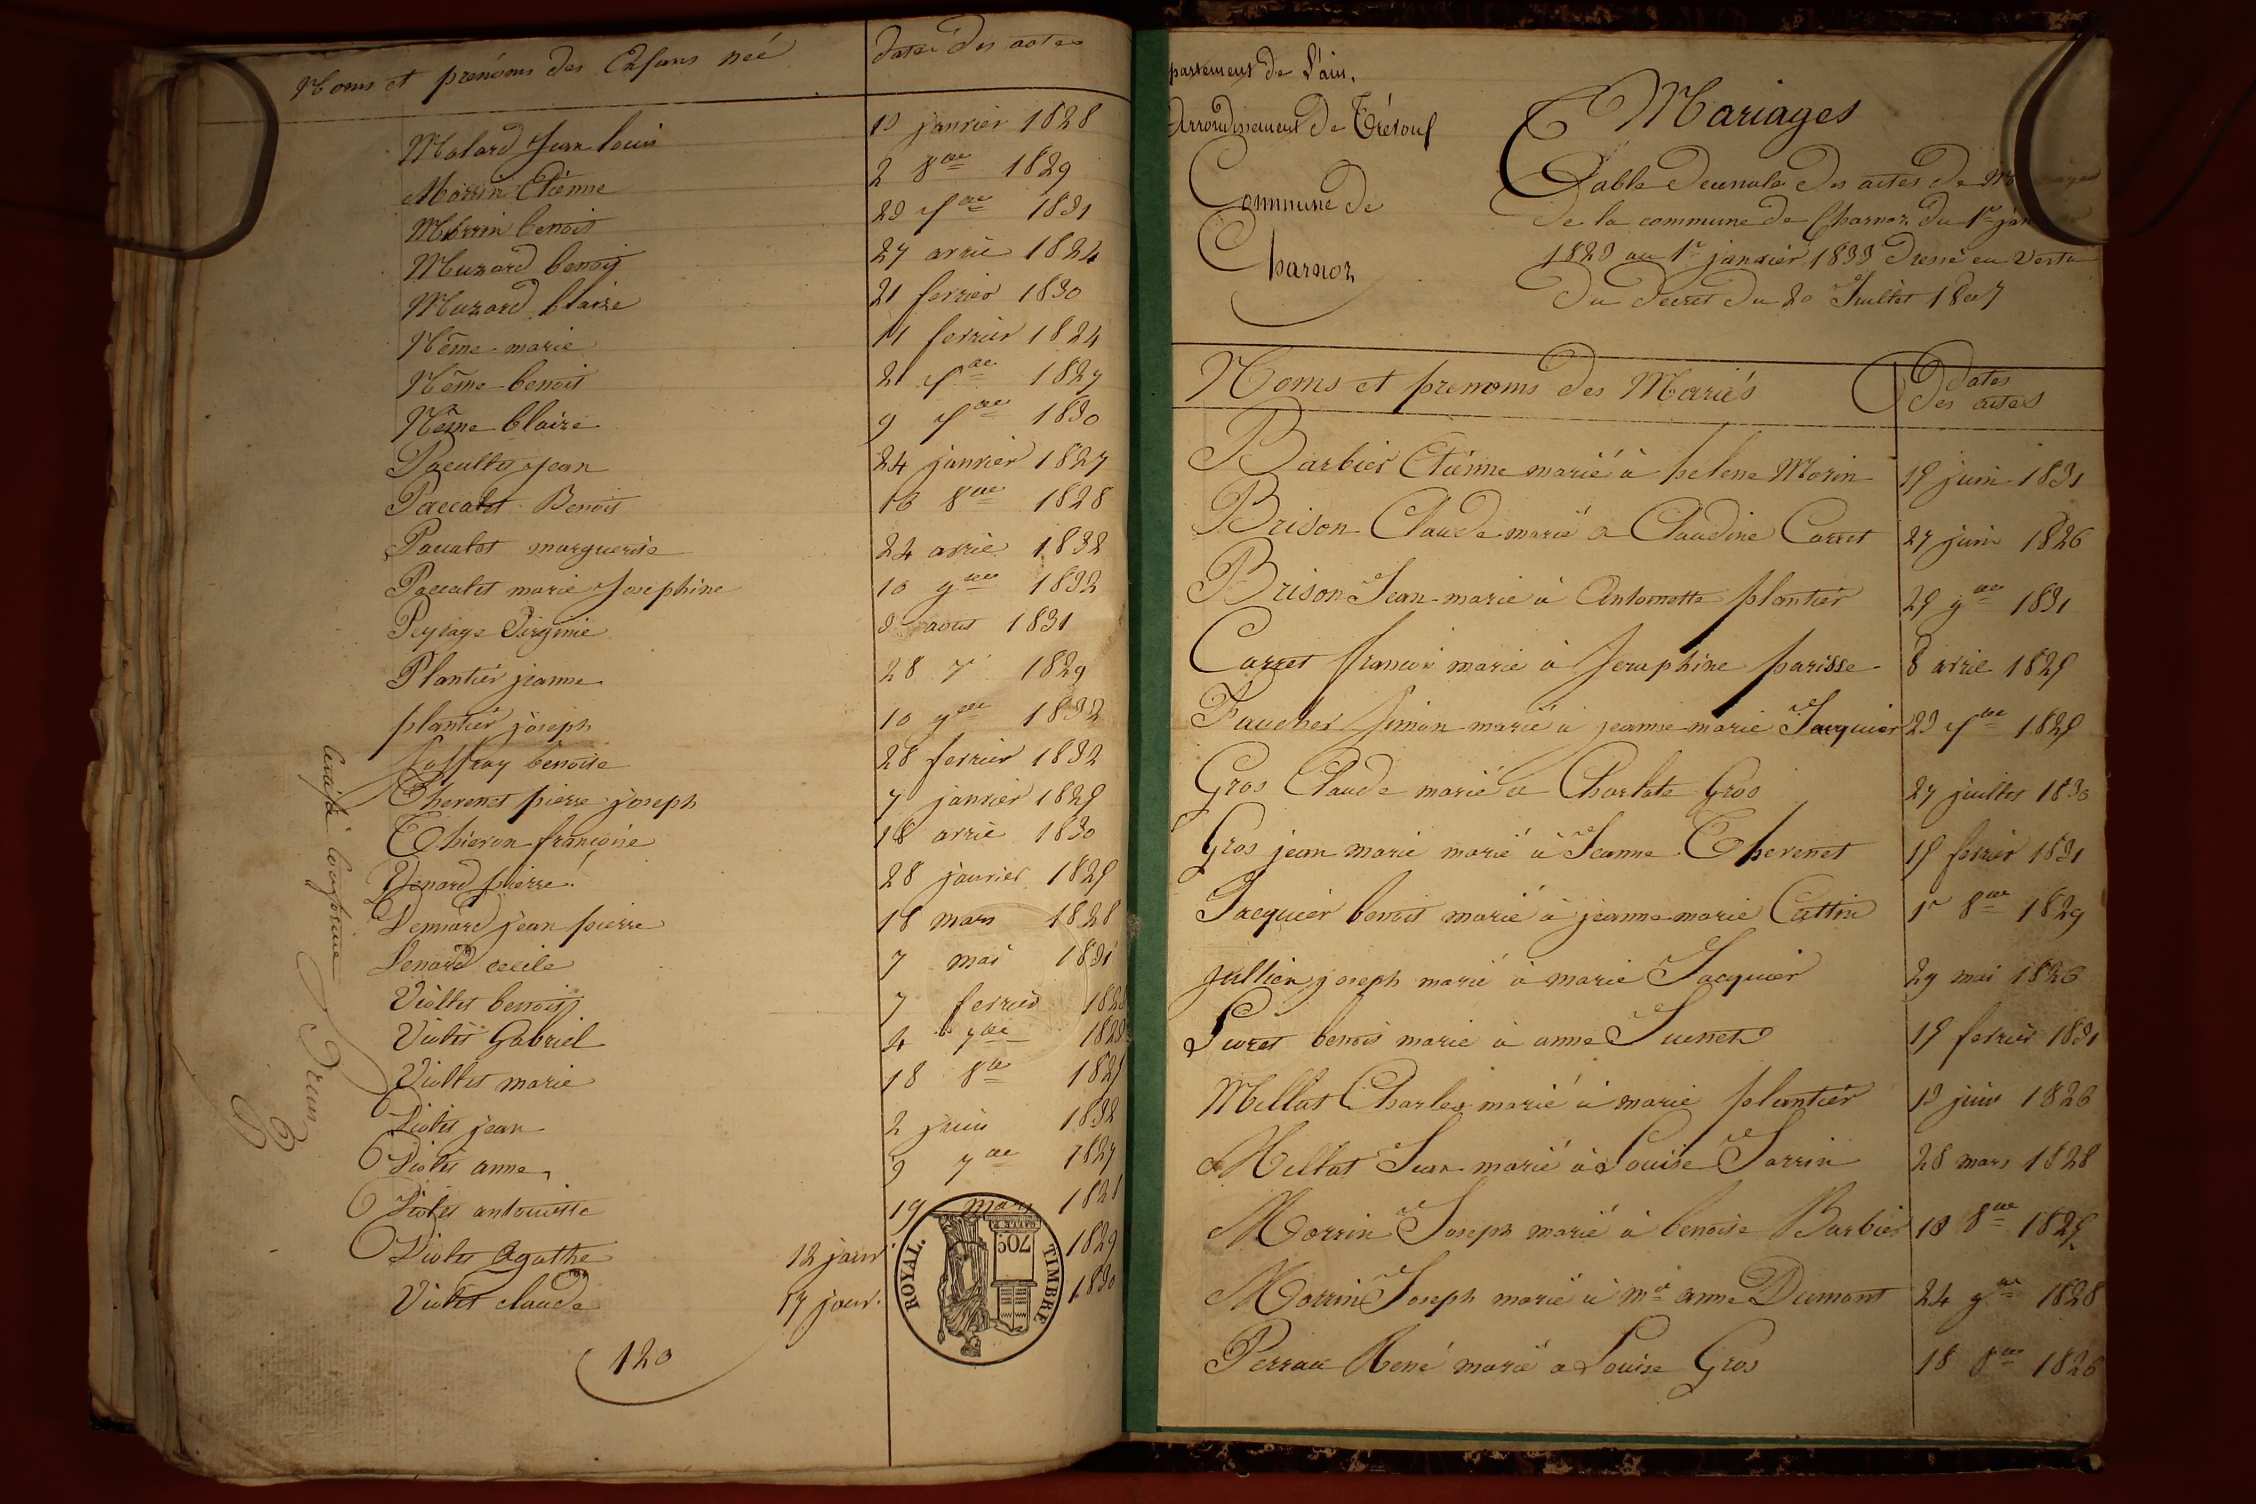 Noms et prenoms des Enfans née dates des actes
Molard Jean louis 13 janvier 1828
Morrin Etienne 2 8bre 1829
Morrin benoit 23 7bre 1831
Muzard benoit 27 avril 1824
Muzard blaise 21 fevrier 1830
Nême marie 11 fevrier 1824
Nême benoit 21 7bre 1827
Nême blaise 9 7bre 1830
Paccallet jean 24 janvier 1827
Paccalet Benoit 16 8bre 1828
Paccalet marguerite 24 avril 1832
Paccalet marie Josephine 10 9bre 1832
Virginie 3 aout 1831
Plantier jeanne 28 7 1829
plantier joseph 10 9bre 1832
Joffray benoite 28 fevrier 1832
Thevenet pierre joseph 7 janvier 1825
Thieron françoise 18 avril 1830
Venard pierre 28 janvier 1825
Vennard jean pierre 18 mars 1828
Venard cecile 7 mai 1831
Viollet benoit 7 fevrier 182
Violet Gabriel 4 7bre 1823
Viollet marie 18 8bre 1825
Violet jean 2 juin 1832
Violet anne 3 7bre 1827
Violet antoinette 19 mars 182
Violet Agathe 12 janv. 1829
Violet claude 17 janv. 1830
120
ROYAL. TIMBRE
70c
partement de l'ain.
Arrondissement de Trévoux
Commune de
Charnoz
Mariages
Table Decenale Des actes de M
De la commune de Charnoz du 1er jan
1823 au 1r janvier 1833 Dressé en vertu
Du Decret Du 20 Juillet 1807
Noms et prenoms Des Mariés dates des actes
Barbier Etienne marié à helene Morin 15 juin 1831
Brison Claude marié a Claudine Carret 27 juin 1826
Brison Jean marié à Antoinette plantier 25 9bre 1831
Carret francois marié à Seraphine parisse 8 avril 1825
Faucher Simon marié à jeanne marie Jacquier 23 7bre 1825
Gros Claude marié à Charlote Gros 27 juillet 1830
Gros jean marie marié à Jeanne Thevenet 15 fevrier 1831
Jacquier benoit marié à jeanne marie Cattin 1r 8bre 1829
Jullien joseph marié à marie Jacquier 29 mai 1826
Livret benoit marié à anne Juenet 15 fevrier 1831
Millat Charles marié à marie plantier 13 juin 1826
Millat Jean marié à Louise Sarrin 28 mars 1828
Morrin Joseph marié à benoite Barbier 18 8bre 1825
Morrin Joseph marié à mie anne Dumont 24 9bre 1828
Perrau René marié a Louise Gros 18 8bre 1826